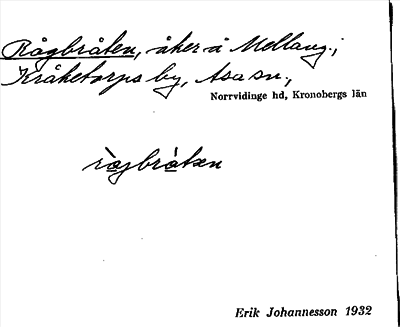 Rågbråten, åker å Mellang.;
Kråketorps by, Asa sn.,
Norrvidinge hd, Kronobergs län
rògbràtən
Erik Johannesson 1932